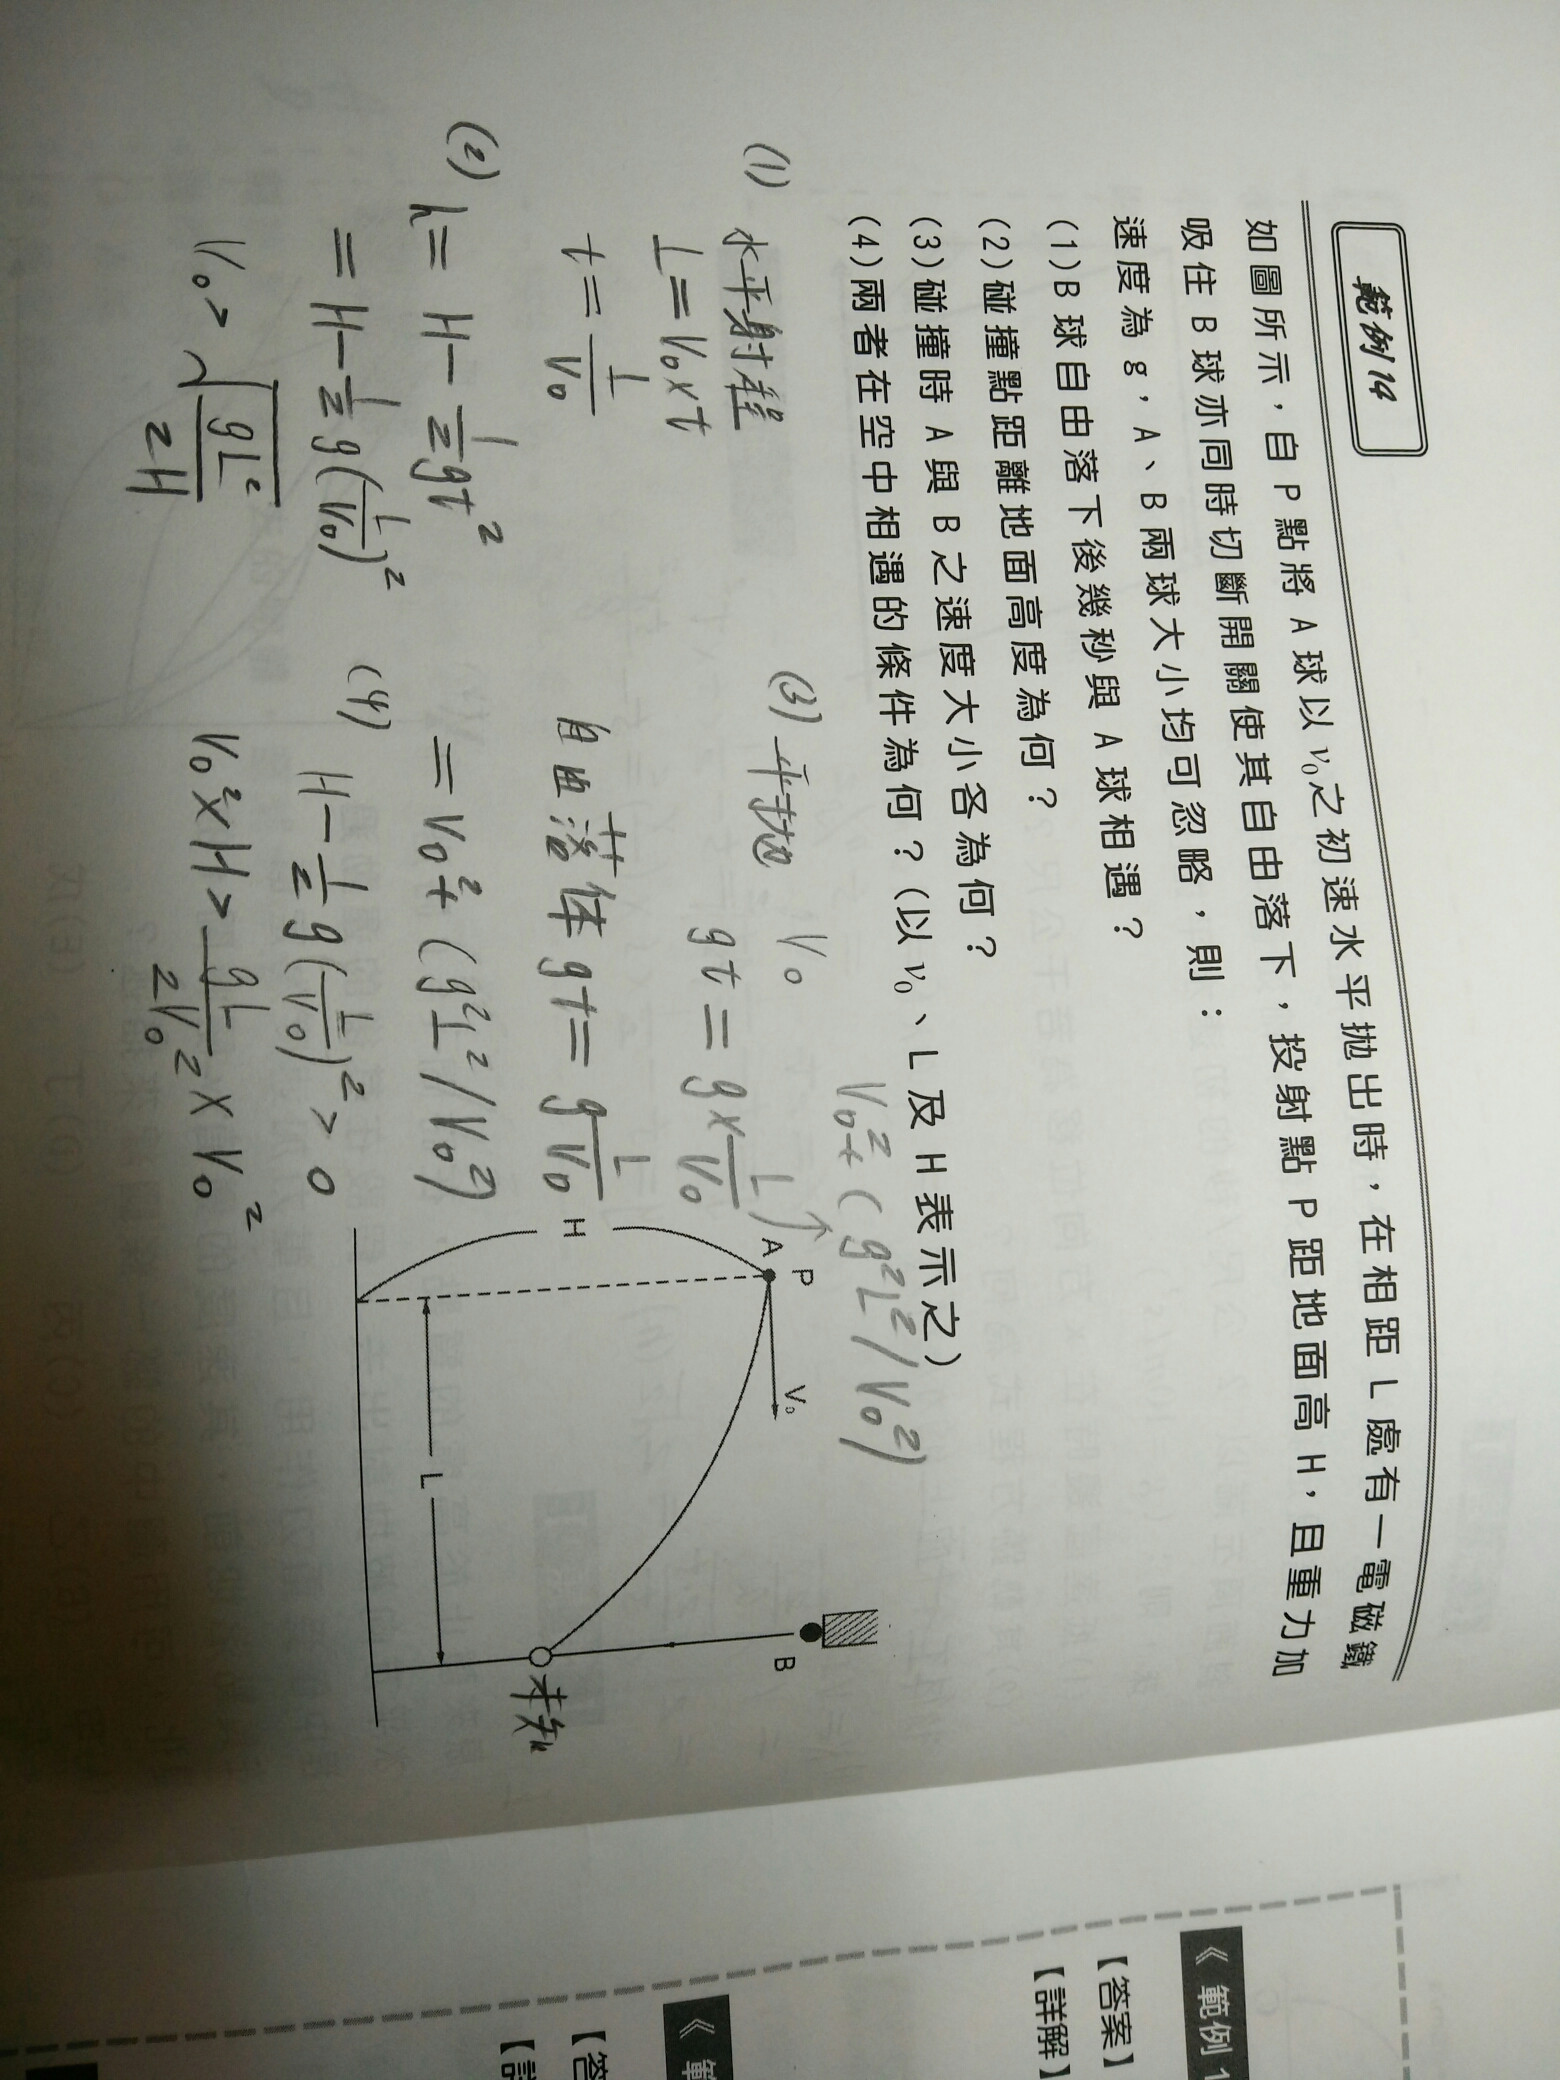 範例14
如圖所示，自P點將A球以v₀之初速水平拋出時，在相距L處有一電磁鐵
吸住B球亦同時切斷開關使其自由落下，投射點P距地面高H，且重力加
速度為g，A、B兩球大小均可忽略，則：
(1)B球自由落下後幾秒與A球相遇？
(2)碰撞點距離地面高度為何？
(3)碰撞時A與B之速度大小各為何？
(4)兩者在空中相遇的條件為何？(以v₀、L及H表示之)
(1) 水平射程
L=V₀×t
t=L/V₀
(2) h=H-1/2gt²
=H-1/2g(L/V₀)²
V₀>√(gL²/2H)
(3) 平拋 V₀
V₀²+(g²L²/V₀²)
gt=g×L/V₀
自由落体gt=gL/V₀
=V₀²+(g²L²/V₀²)
(4) H-1/2g(L/V₀)²>0
V₀²×H>gL/2V₀²×V₀²
P
A
V₀
B
H
L
未知h
《範例1
【答案】
【詳解】
《範
【答